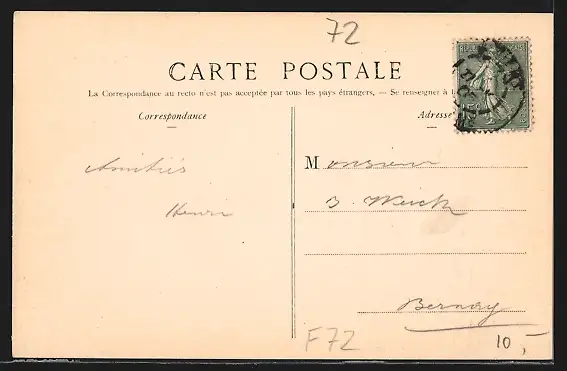 72
CARTE POSTALE
La Correspondance au recto n'est pas acceptée par tous les pays étrangers. — Se renseigner à l
Correspondance
Adresse
Amitiés
Henri
Monsieur
Bernay
F72
10,-